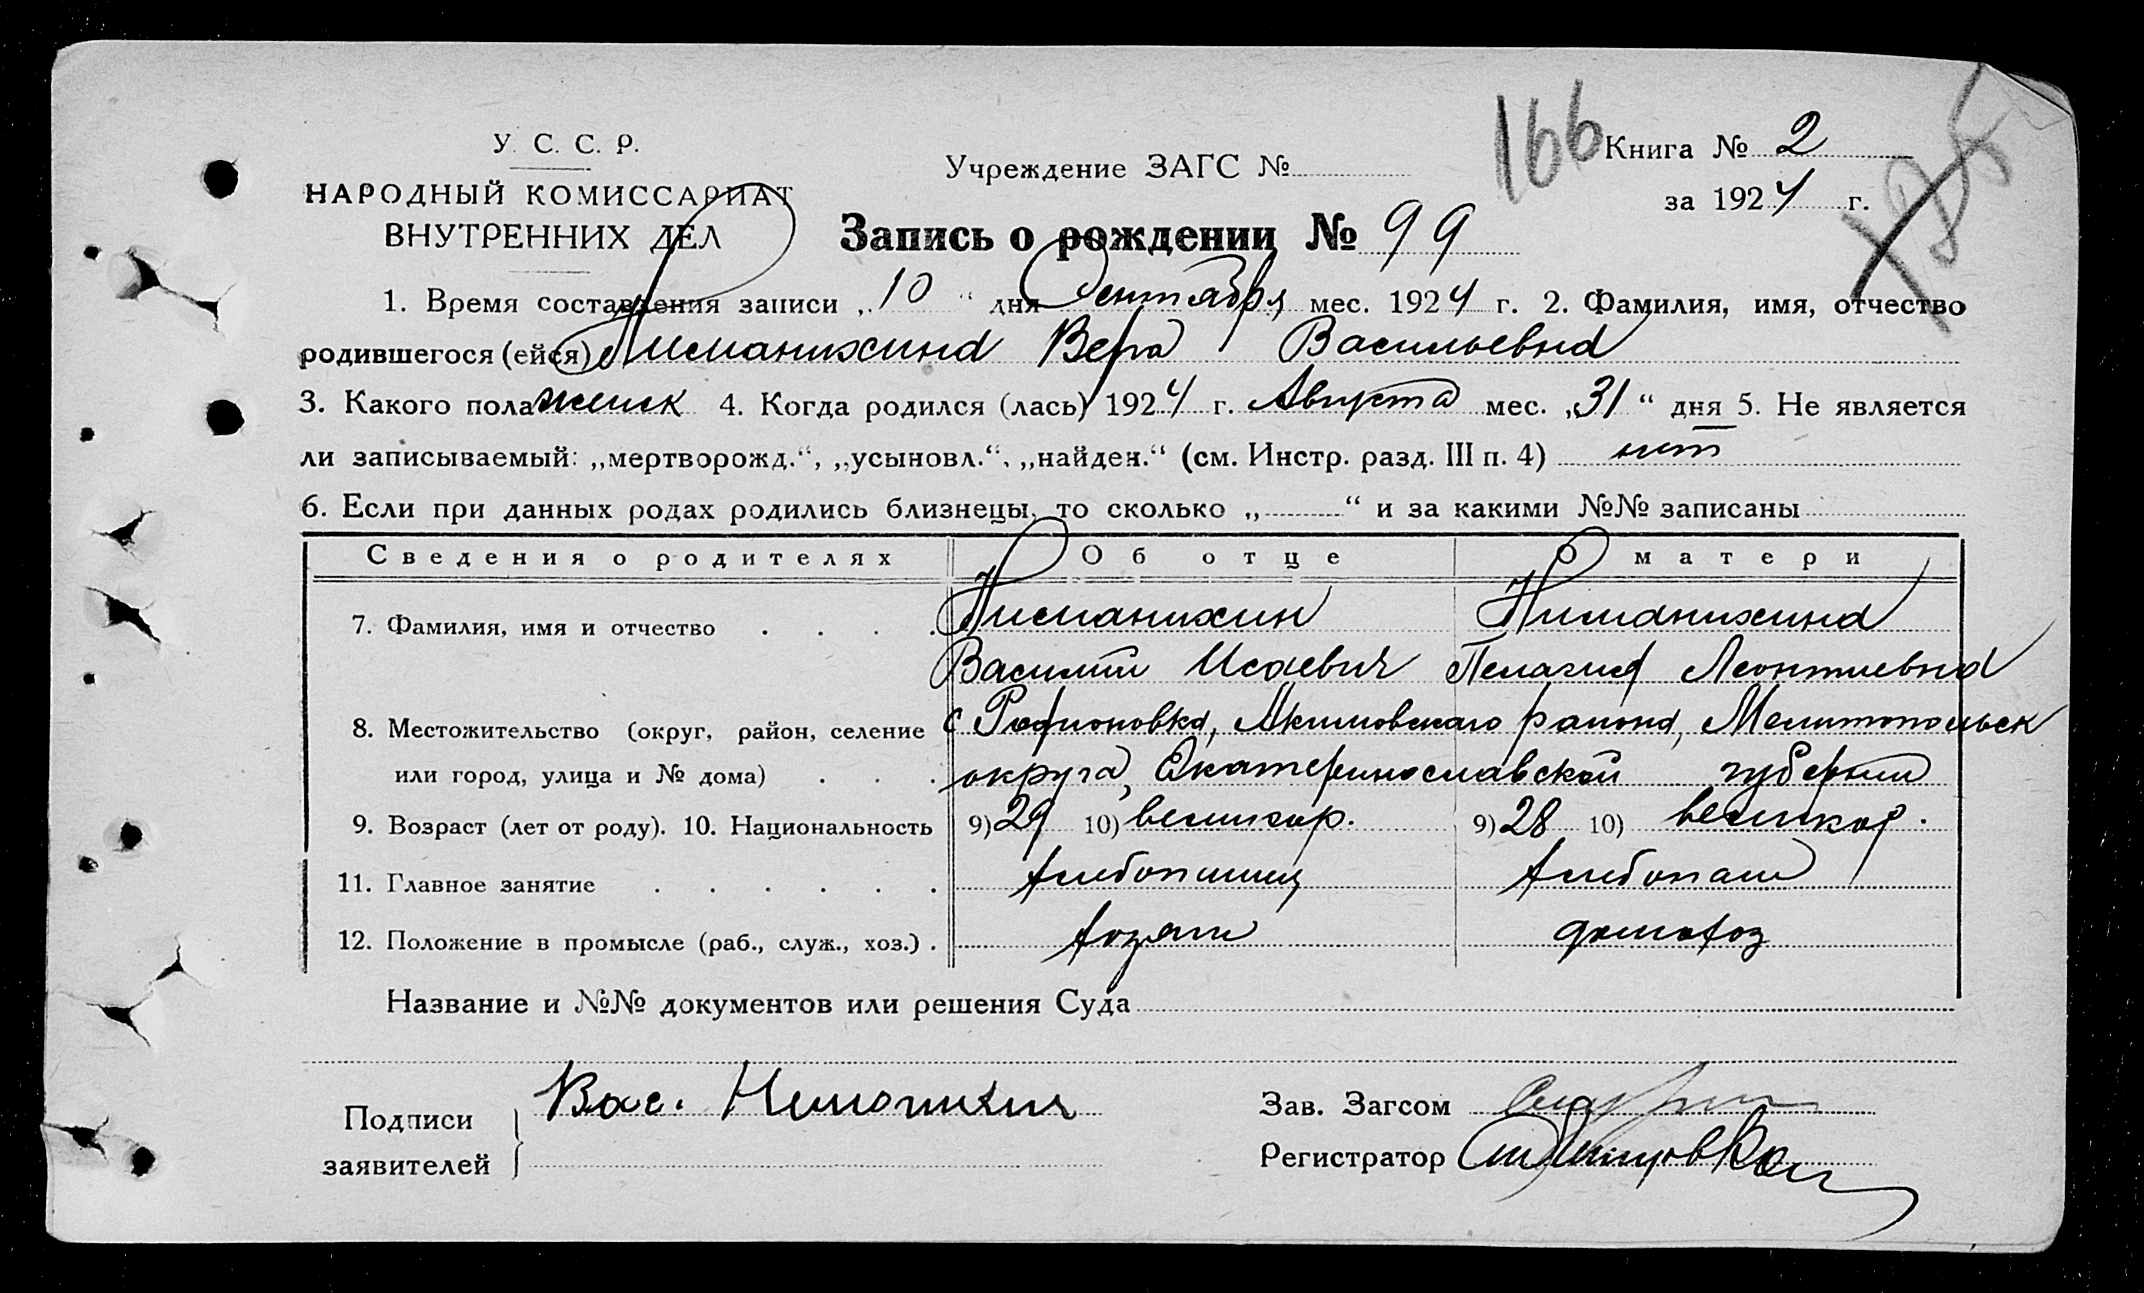 У. С. С. Р.
НАРОДНЫЙ КОМИССАРИАТ
ВНУТРЕННИХ ДЕЛ
Учреждение ЗАГС №
166
Книга № 2
за 1924 г.
Запись о рождении № 99
1. Время составления записи „10“ дня Сентября мес. 1924 г. 2. Фамилия, имя, отчество
родившегося (ейся) Вера Васильевна
3. Какого пола женск 4. Когда родился (лась) 1924 г. Августа мес. „31“ дня 5. Не является
ли записываемый: „мертворожд.“, „усыновл.“, „найден.“ (см. Инстр. разд. III п. 4) нет
6. Если при данных родах родились близнецы, то сколько „ “ и за какими №№ записаны
Сведения о родителях Об отце О матери
7. Фамилия, имя и отчество
Василий Исаевич Пелагия Леонтиевна
8. Местожительство (округ, район, селение с Родионовка, Акимовского района, Мелитопольск
или город, улица и № дома) округа, Екатеринославской губернии
9. Возраст (лет от роду). 10. Национальность 9) 29 10) великор. 9) 28 10) великор.
11. Главное занятие хлебопашец хлебопаш
12. Положение в промысле (раб., служ., хоз.) хозяин домохоз
Название и №№ документов или решения Суда
Подписи
заявителей
Вас.
Зав. Загсом
Регистратор